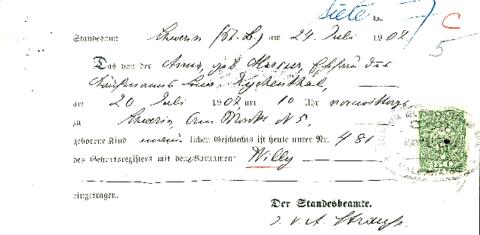 Siete
C
5
Standesamt Schwerin (St. B.) am 24 Juli 1902
Das von der Anna, geb. Ehefrau des
Kaufmanns Louis Rychenthal,
am 20 Juli 1902 um 10 Uhr vormittags
zu Schwerin Am Markt N 5.
geborene Kind männlichen Geschlechts ist heute unter Nr. 481
des Geburtsregisters mit dem Vornamen Willy
eingetragen.
Der Standesbeamte.
J. V. A. Strauß